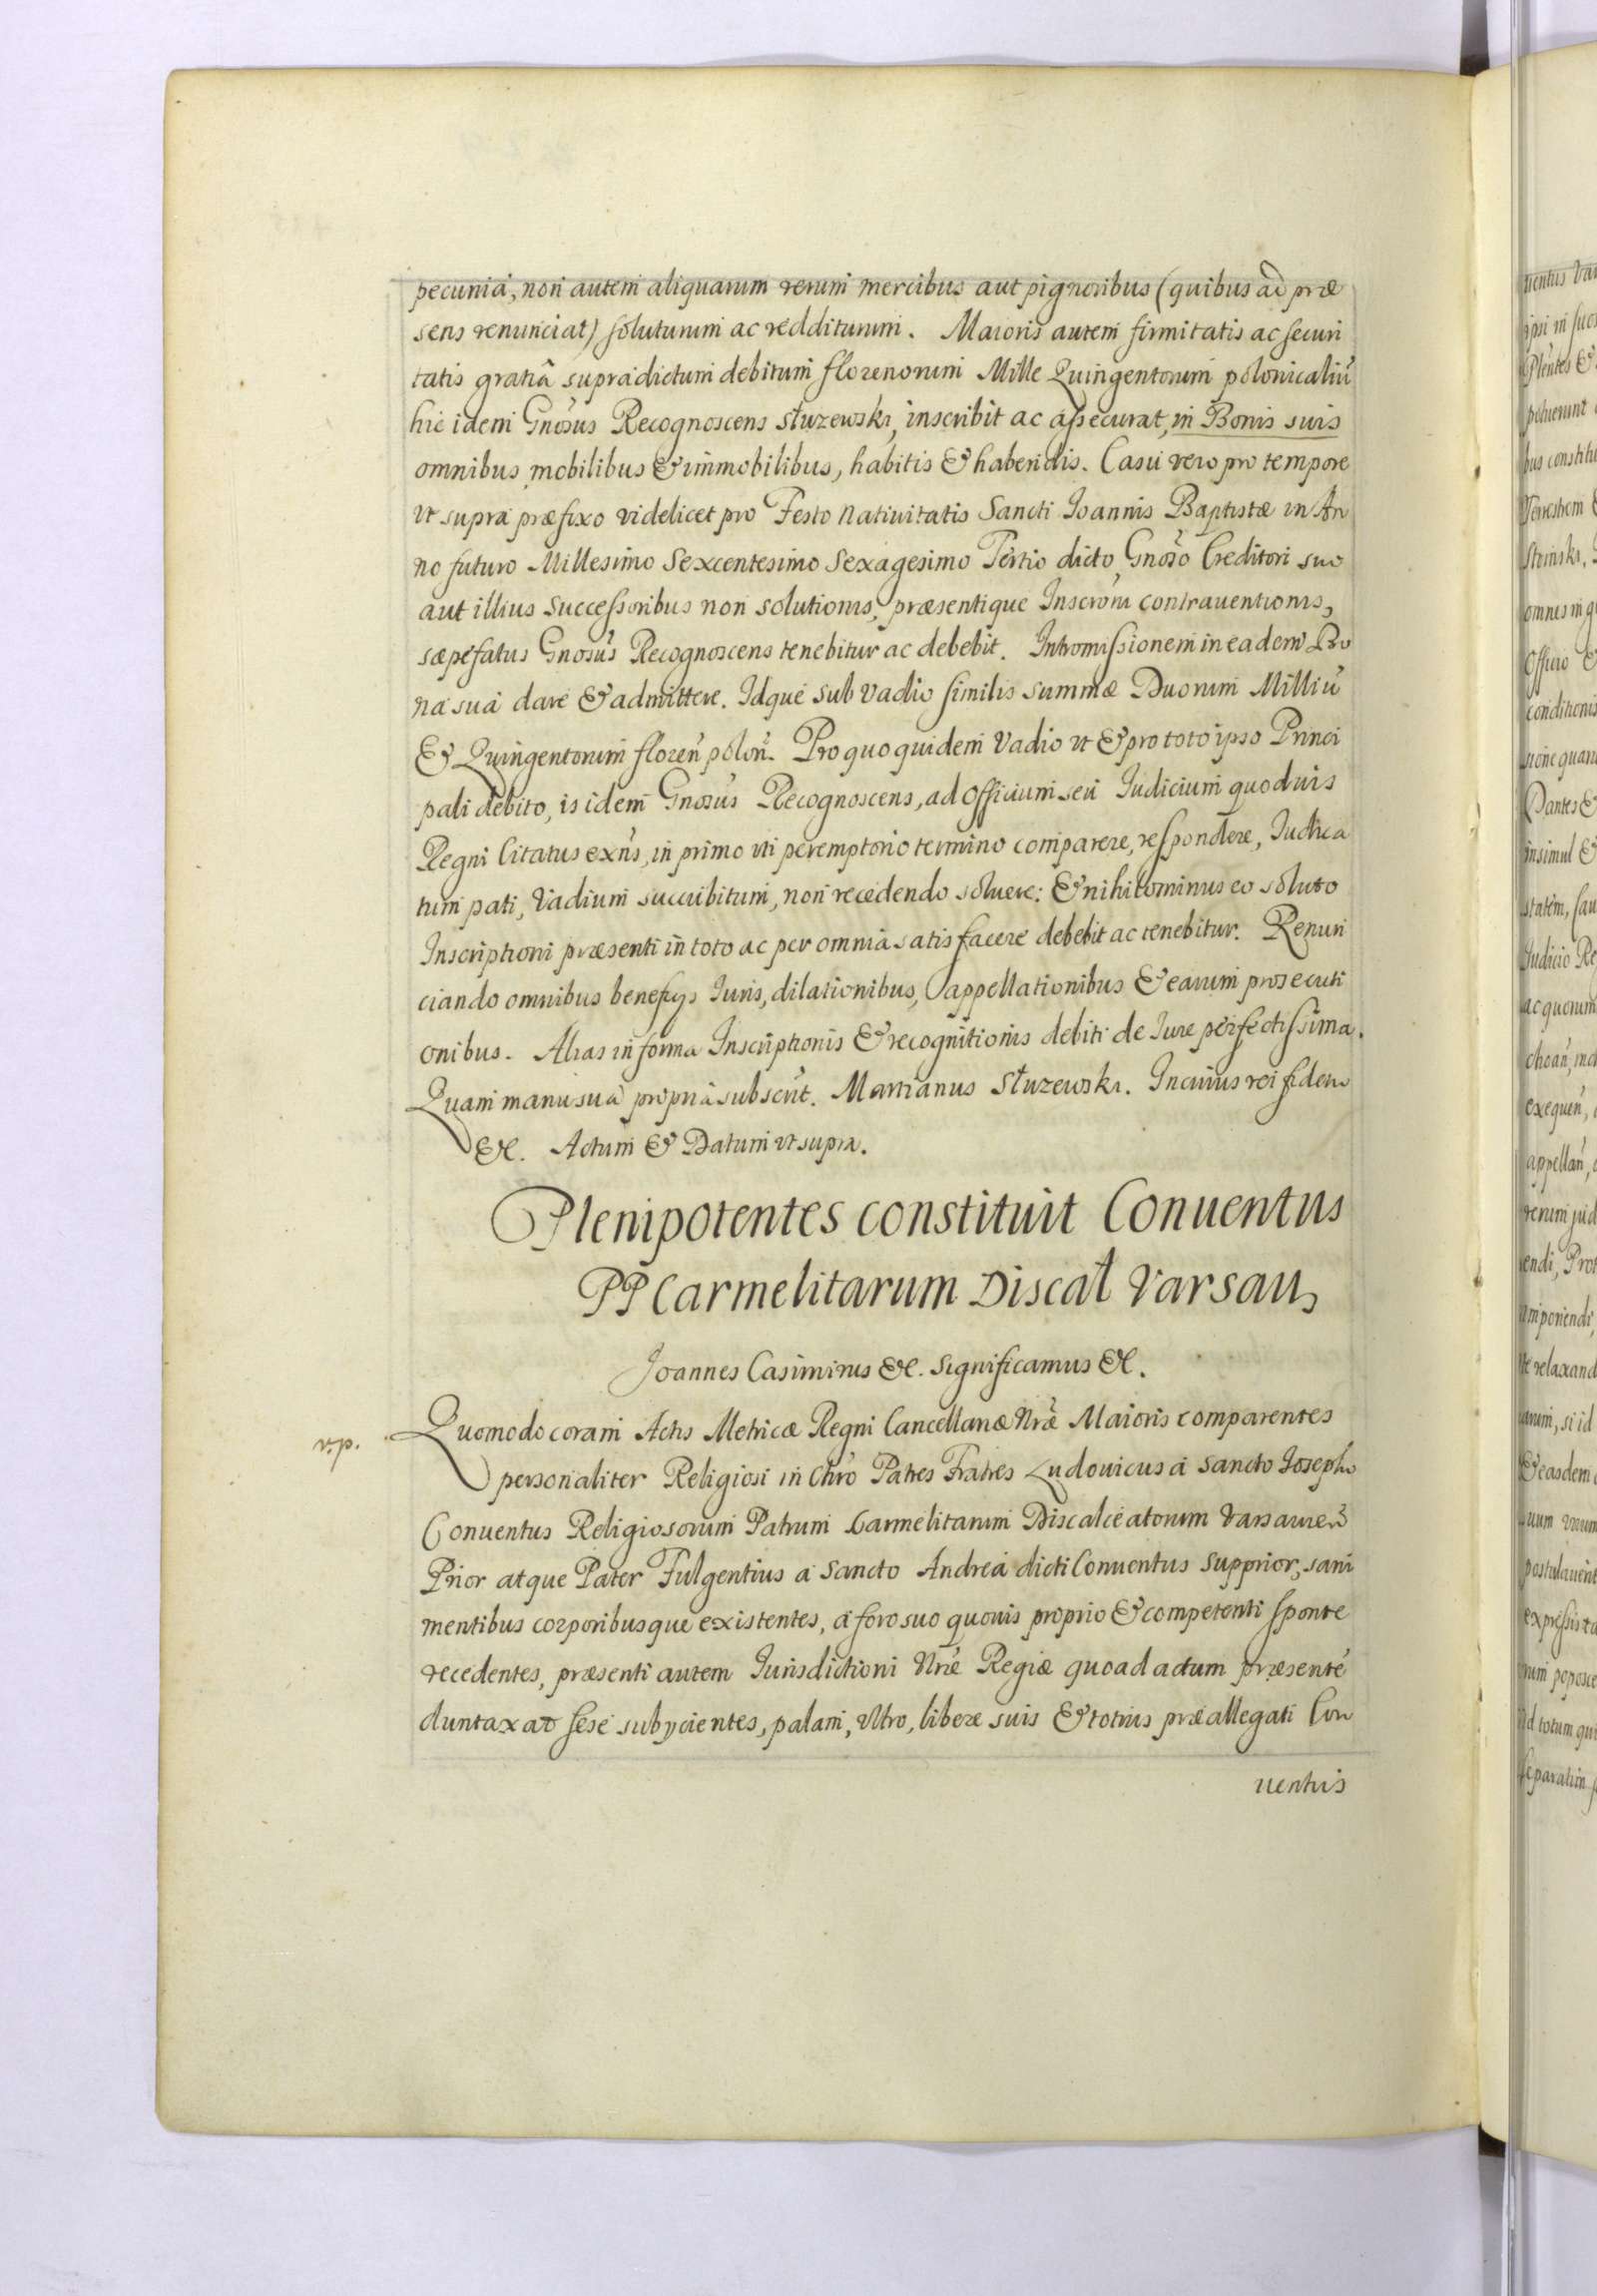 pecunia, non autem aliquarum rerum mercibus aut pignoribus (quibus ad præ
sens renunciat) soluturum ac redditurum. Maioris autem firmitatis ac securi
tatis gratiâ supradictum debitum florenorum Mille Quingentorum polonicaliũ
hic idem Gnosus Recognoscens Służewski, inscribit ac assecurat, in Bonis suis
omnibus mobilibus & immobilibus, habitis & habendis. Casu vero pro tempore
vt supra præfixo videlicet pro Festo Natiuitatis Sancti Ioannis Baptistæ in An
no futuro Millesimo Sexcentesimo Sexagesimo Tertio dicto Gnoso Creditori suo
aut illius Successoribus non solutionis, præsentique Inscrōni contrauentionis,
sæpefatus Gnosus Recognoscens tenebitur ac debebit. Intromissionem in eadem Bo
na sua dare & admittere. Idque sub vadio similis summæ Duorum Milliũ
& Quingentorum floreñ poloñ. Pro quo quidem Vadio vt & pro toto ipso Princi
pali debito, is idem Gnosus Recognoscens, ad Officium seu Iudicium quoduis
Regni Citatus exñs, in primo vti peremptorio termino comparere, respondere, Iudica
tum pati, Vadium succubitum, non recedendo soluere: & nihilominus eo soluto
Inscriptioni præsenti in toto ac per omnia satisfacere debebit ac tenebitur. Renun
ciando omnibus beneficys Iuris, dilationibus, appellationibus & earum prosecuti
onibus. Alias in forma Inscriptionis & recognitionis debiti de Iure perfectissima.
Quam manu sua propria subscrit. Martianus Służewski. In cuius rei fidem
&c. Actum & Datum vt supra.
Plenipotentes constituit Conuentus
PP Carmelitarum Discal Varsau,
Joannes Casimirus &c. Significamus &c.
Quomodo coram Actis Metricæ Regni Cancellariæ Nræ Maioris comparentes
personaliter Religiosi in Chro Patres Fratres Ludouicus a Sancto Iosepho
Conuentus Religiosorum Patrum Carmelitarum Discalceatorum Varsauieñ
Prior atque Pater Fulgentius a Sancto Andrea dicti Conuentus Supprior, sani
mentibus corporibusque existentes, a foro suo quouis proprio & competenti sponte
recedentes, præsenti autem Iurisdictioni Nræ Regiæ quoad actum præsente
duntaxat sese subycientes, palam, vltro, libere suis & totius præallegati Con
uentus